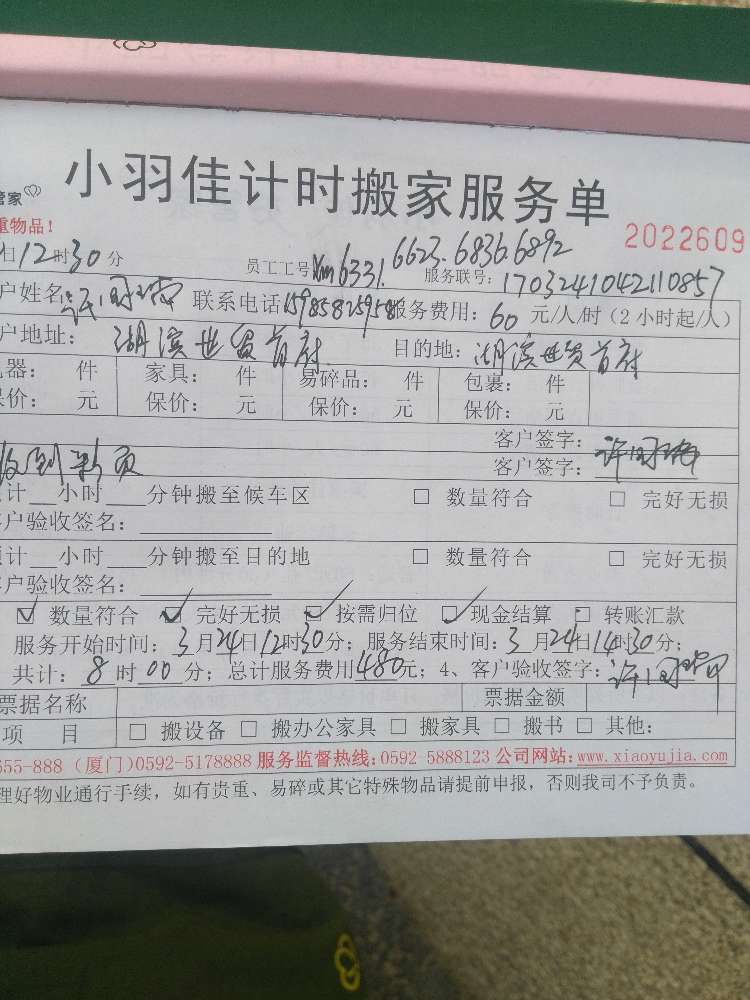 小羽佳计时搬家服务单
管家
重物品！
2022609
日12时30分 员工工号 6331. 6623. 6836. 6892 服务联号：1703241042110857
户姓名 联系电话15985825958服务费用：60元/人/时（2小时起/人）
户地址：湖滨世贸首府 目的地：湖滨世贸首府
器： 件 家具： 件 易碎品： 件 包裹： 件
保价： 元 保价： 元 保价： 元 保价： 元
客户签字：
收到 客户签字：
计__小时___分钟搬至候车区 □ 数量符合 □ 完好无损
户验收签名：
计__小时___分钟搬至目的地 □ 数量符合 □ 完好无损
户验收签名：
☑ 数量符合 ☑ 完好无损 ☑ 按需归位 ☑ 现金结算 □ 转账汇款
服务开始时间：3月24日12时30分；服务结束时间：3月24日14时30分；
共计：8时00分；总计服务费用480元；4、客户验收签字：
票据名称 票据金额
项 目 □ 搬设备 □ 搬办公家具 □ 搬家具 □ 搬书 □ 其他：
655-888（厦门）0592-5178888 服务监督热线：0592-5888123 公司网站：www.xiaoyujia.com
理好物业通行手续，如有贵重、易碎或其它特殊物品请提前申报，否则我司不予负责。